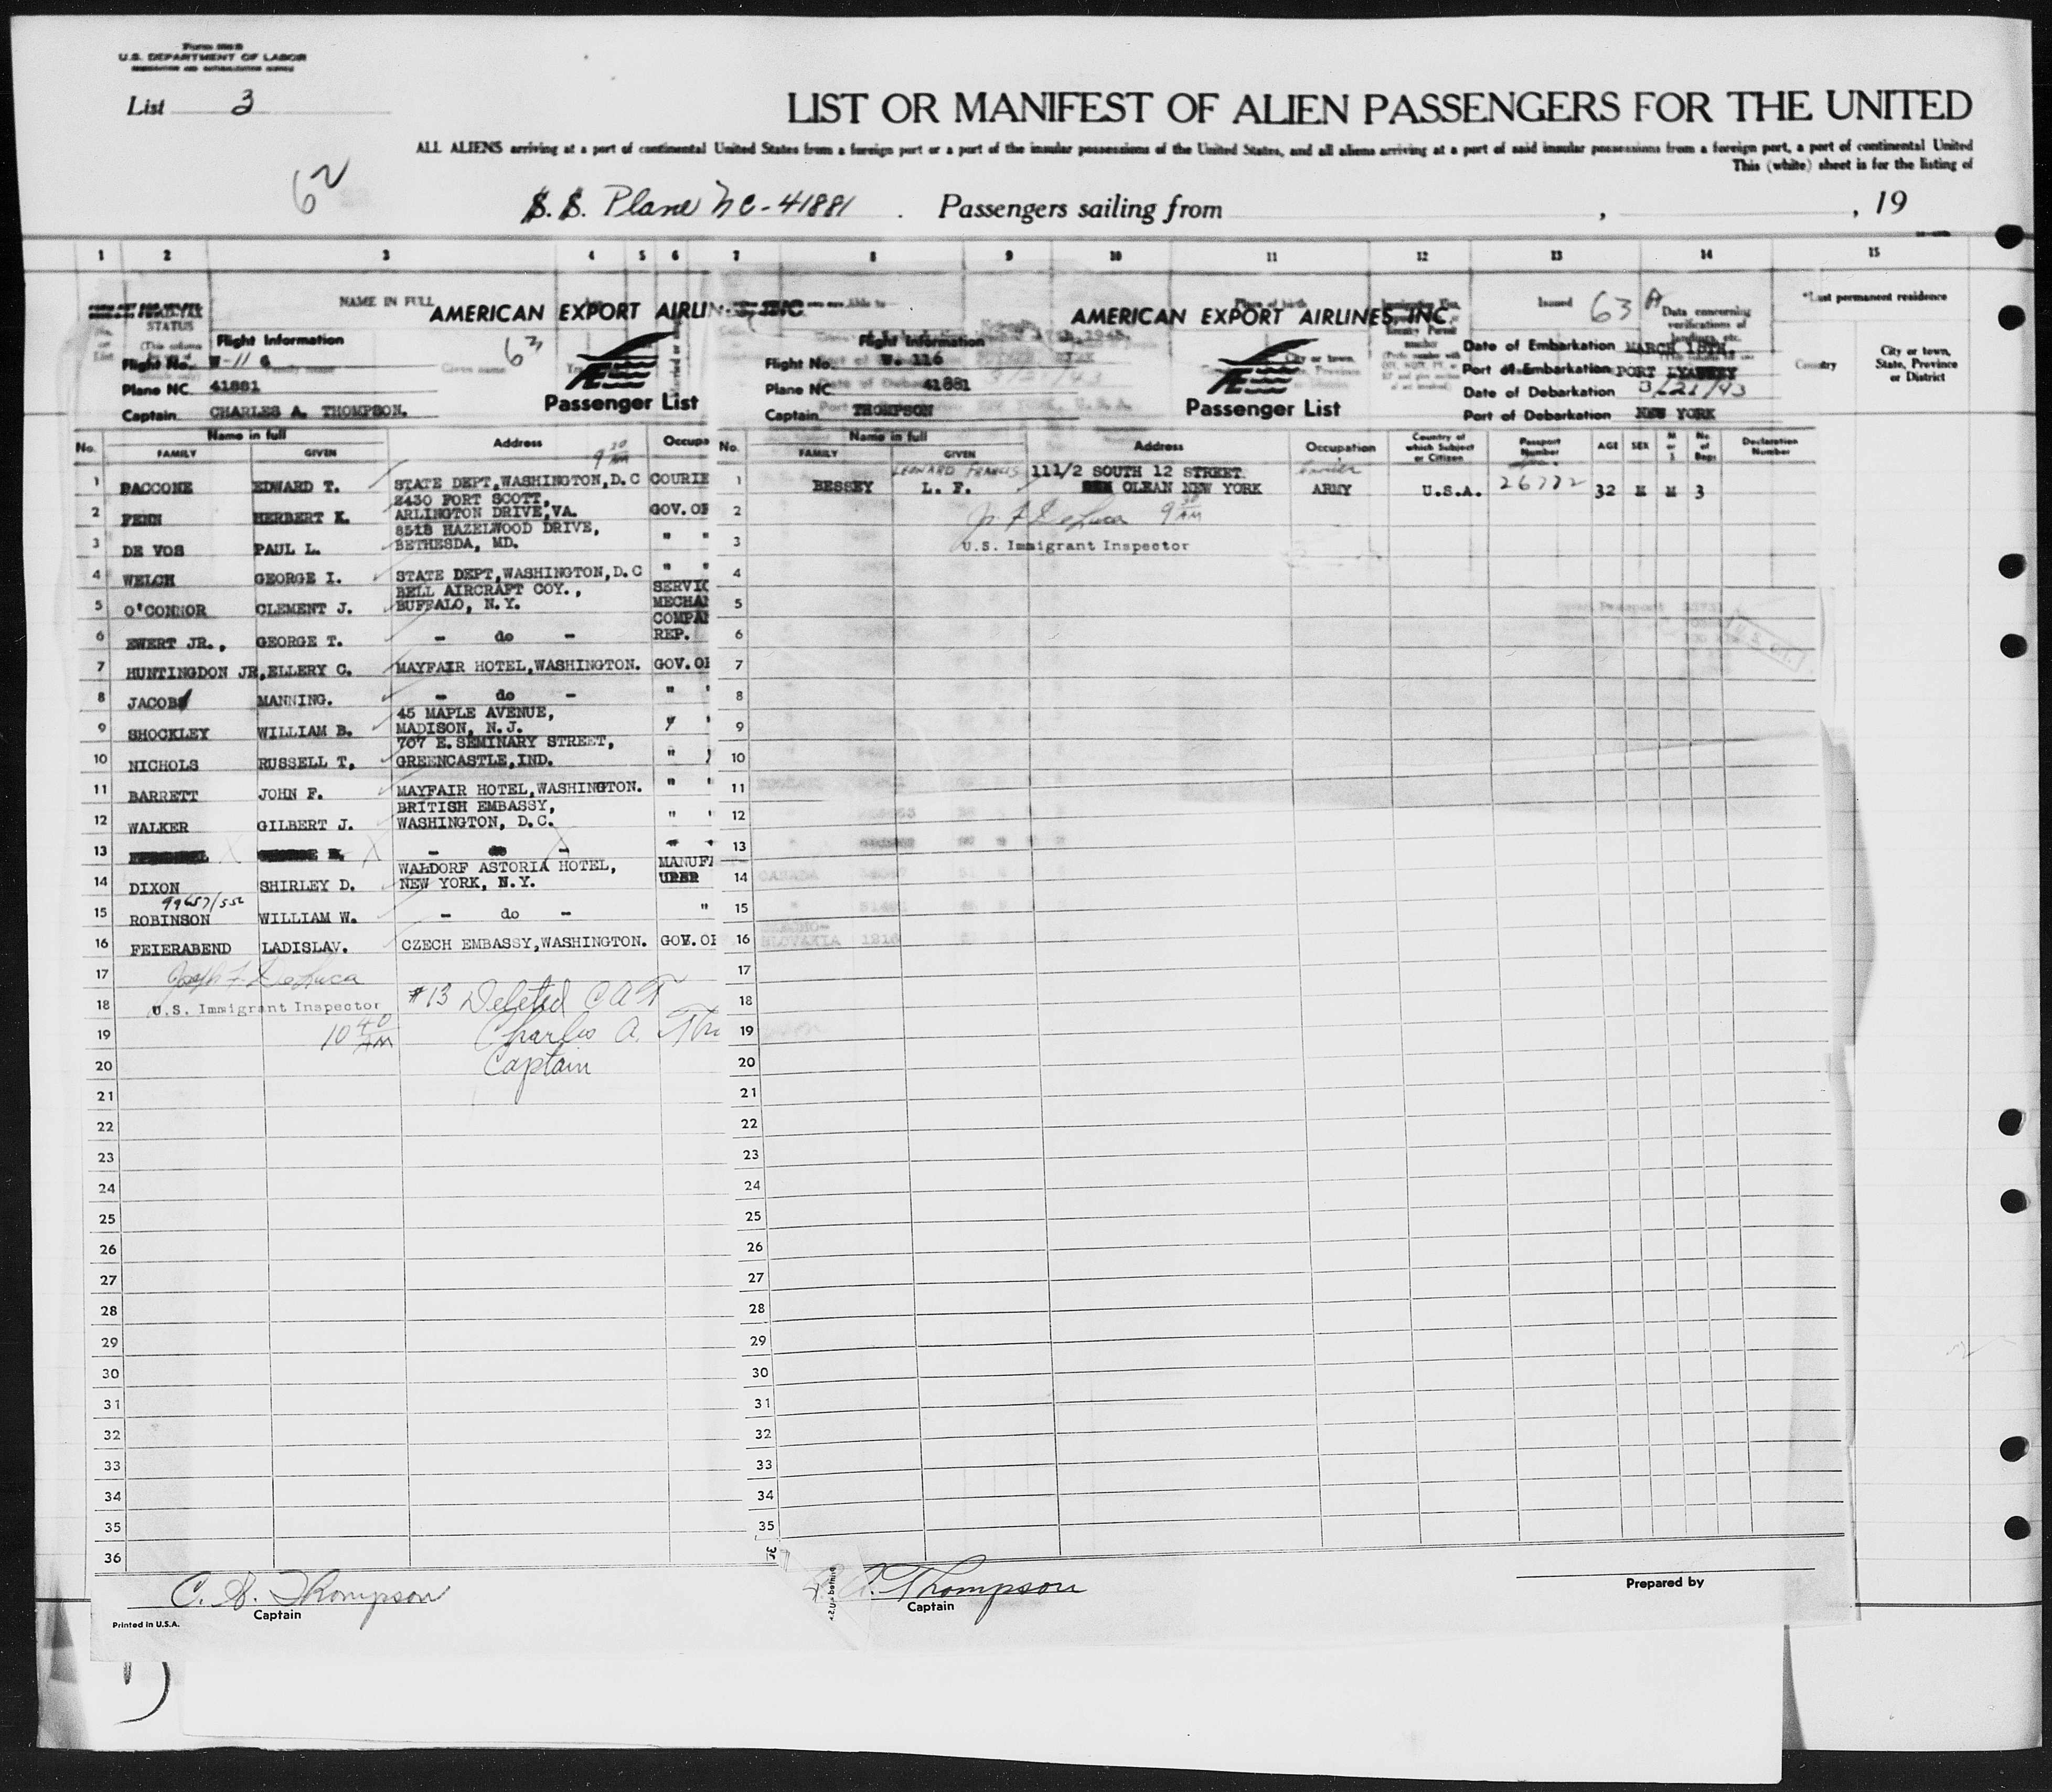 U.S. DEPARTMENT OF LABOR
List 3
LIST OR MANIFEST OF ALIEN PASSENGERS FOR THE UNITED
ALL ALIENS arriving at a port of continental United States from a foreign port or a port of the insular possessions of the United States, and all aliens arriving at a port of said insular possessions from a foreign port, a port of continental United
This (white) sheet is for the listing of
62
S. S. Plane NC-41881 . Passengers sailing from , , 19
1 2 3 4 5 6 7 8 9 10 11 12 13 14 15
STATUS
NAME IN FULL
AMERICAN EXPORT AIRLINES, INC
Flight Information
Flight No. W-11 6
Plane NC. 41881
Captain CHARLES A. THOMPSON.
63
Passenger List
No. Name in full Address Occupa
FAMILY GIVEN
9 30 AM
1 BACCONE EDWARD T. STATE DEPT,WASHINGTON,D.C COURIE
2 FENN HERBERT K. 2430 FORT SCOTT, ARLINGTON DRIVE,VA. GOV.OF
3 DE VOS PAUL L. 8518 HAZELWOOD DRIVE, BETHESDA, MD. " "
4 WELCH GEORGE I. STATE DEPT,WASHINGTON,D.C " "
5 O'CONNOR CLEMENT J. BELL AIRCRAFT COY., BUFFALO, N.Y. SERVIC MECHAN
6 EWERT JR., GEORGE T. - do - COMPAN REP.
7 HUNTINGDON JR,ELLERY C. MAYFAIR HOTEL,WASHINGTON. GOV.OF
8 JACOBS MANNING. - do - " "
9 SHOCKLEY WILLIAM B. 45 MAPLE AVENUE, MADISON, N.J. " "
10 NICHOLS RUSSELL T. 707 E.SEMINARY STREET, GREENCASTLE,IND. "
11 BARRETT JOHN F. MAYFAIR HOTEL,WASHINGTON. " "
12 WALKER GILBERT J. BRITISH EMBASSY, WASHINGTON, D.C. " "
13 - do - " "
14 DIXON SHIRLEY D. WALDORF ASTORIA HOTEL, NEW YORK, N.Y. MANUFA URER
99657/556
15 ROBINSON WILLIAM W. - do - "
16 FEIERABEND LADISLAV. CZECH EMBASSY,WASHINGTON. GOV.OF
17 Joseph F. DeLuca
18 U.S. Immigrant Inspector #13 Deleted CAT
19 10 40 AM Charles A. Tho
20 Captain
21
22
23
24
25
26
27
28
29
30
31
32
33
34
35
36
C. A. Thompson
Captain
Printed in U.S.A.
AMERICAN EXPORT AIRLINES, INC.
Flight Information
Flight No. W. 116
Plane NC 41881
Captain THOMPSON
Passenger List
Issued 63 A
Data concerning verifications of landings, etc.
*Last permanent residence
Country
City or town, State, Province or District
Date of Embarkation MARCH 18TH.
Port of Embarkation PORT LYAUTEY
Date of Debarkation 3/21/43
Port of Debarkation NEW YORK
No. Name in full Address Occupation Country of which Subject or Citizen Passport Number AGE SEX M or S No. of Bags Declaration Number
FAMILY GIVEN
LEONARD FRANCIS
1 BESSEY L. F. 111/2 SOUTH 12 STREET. OLEAN NEW YORK ARMY U.S.A. 26772 32 M M 3
2 J. F. DeLuca 9 30 AM
3 U.S. Immigrant Inspector
4
5
6
7
8
9
10
11
12
13
14
15
16
17
18
19
20
21
22
23
24
25
26
27
28
29
30
31
32
33
34
35
C. A. Thompson
Captain
Prepared by